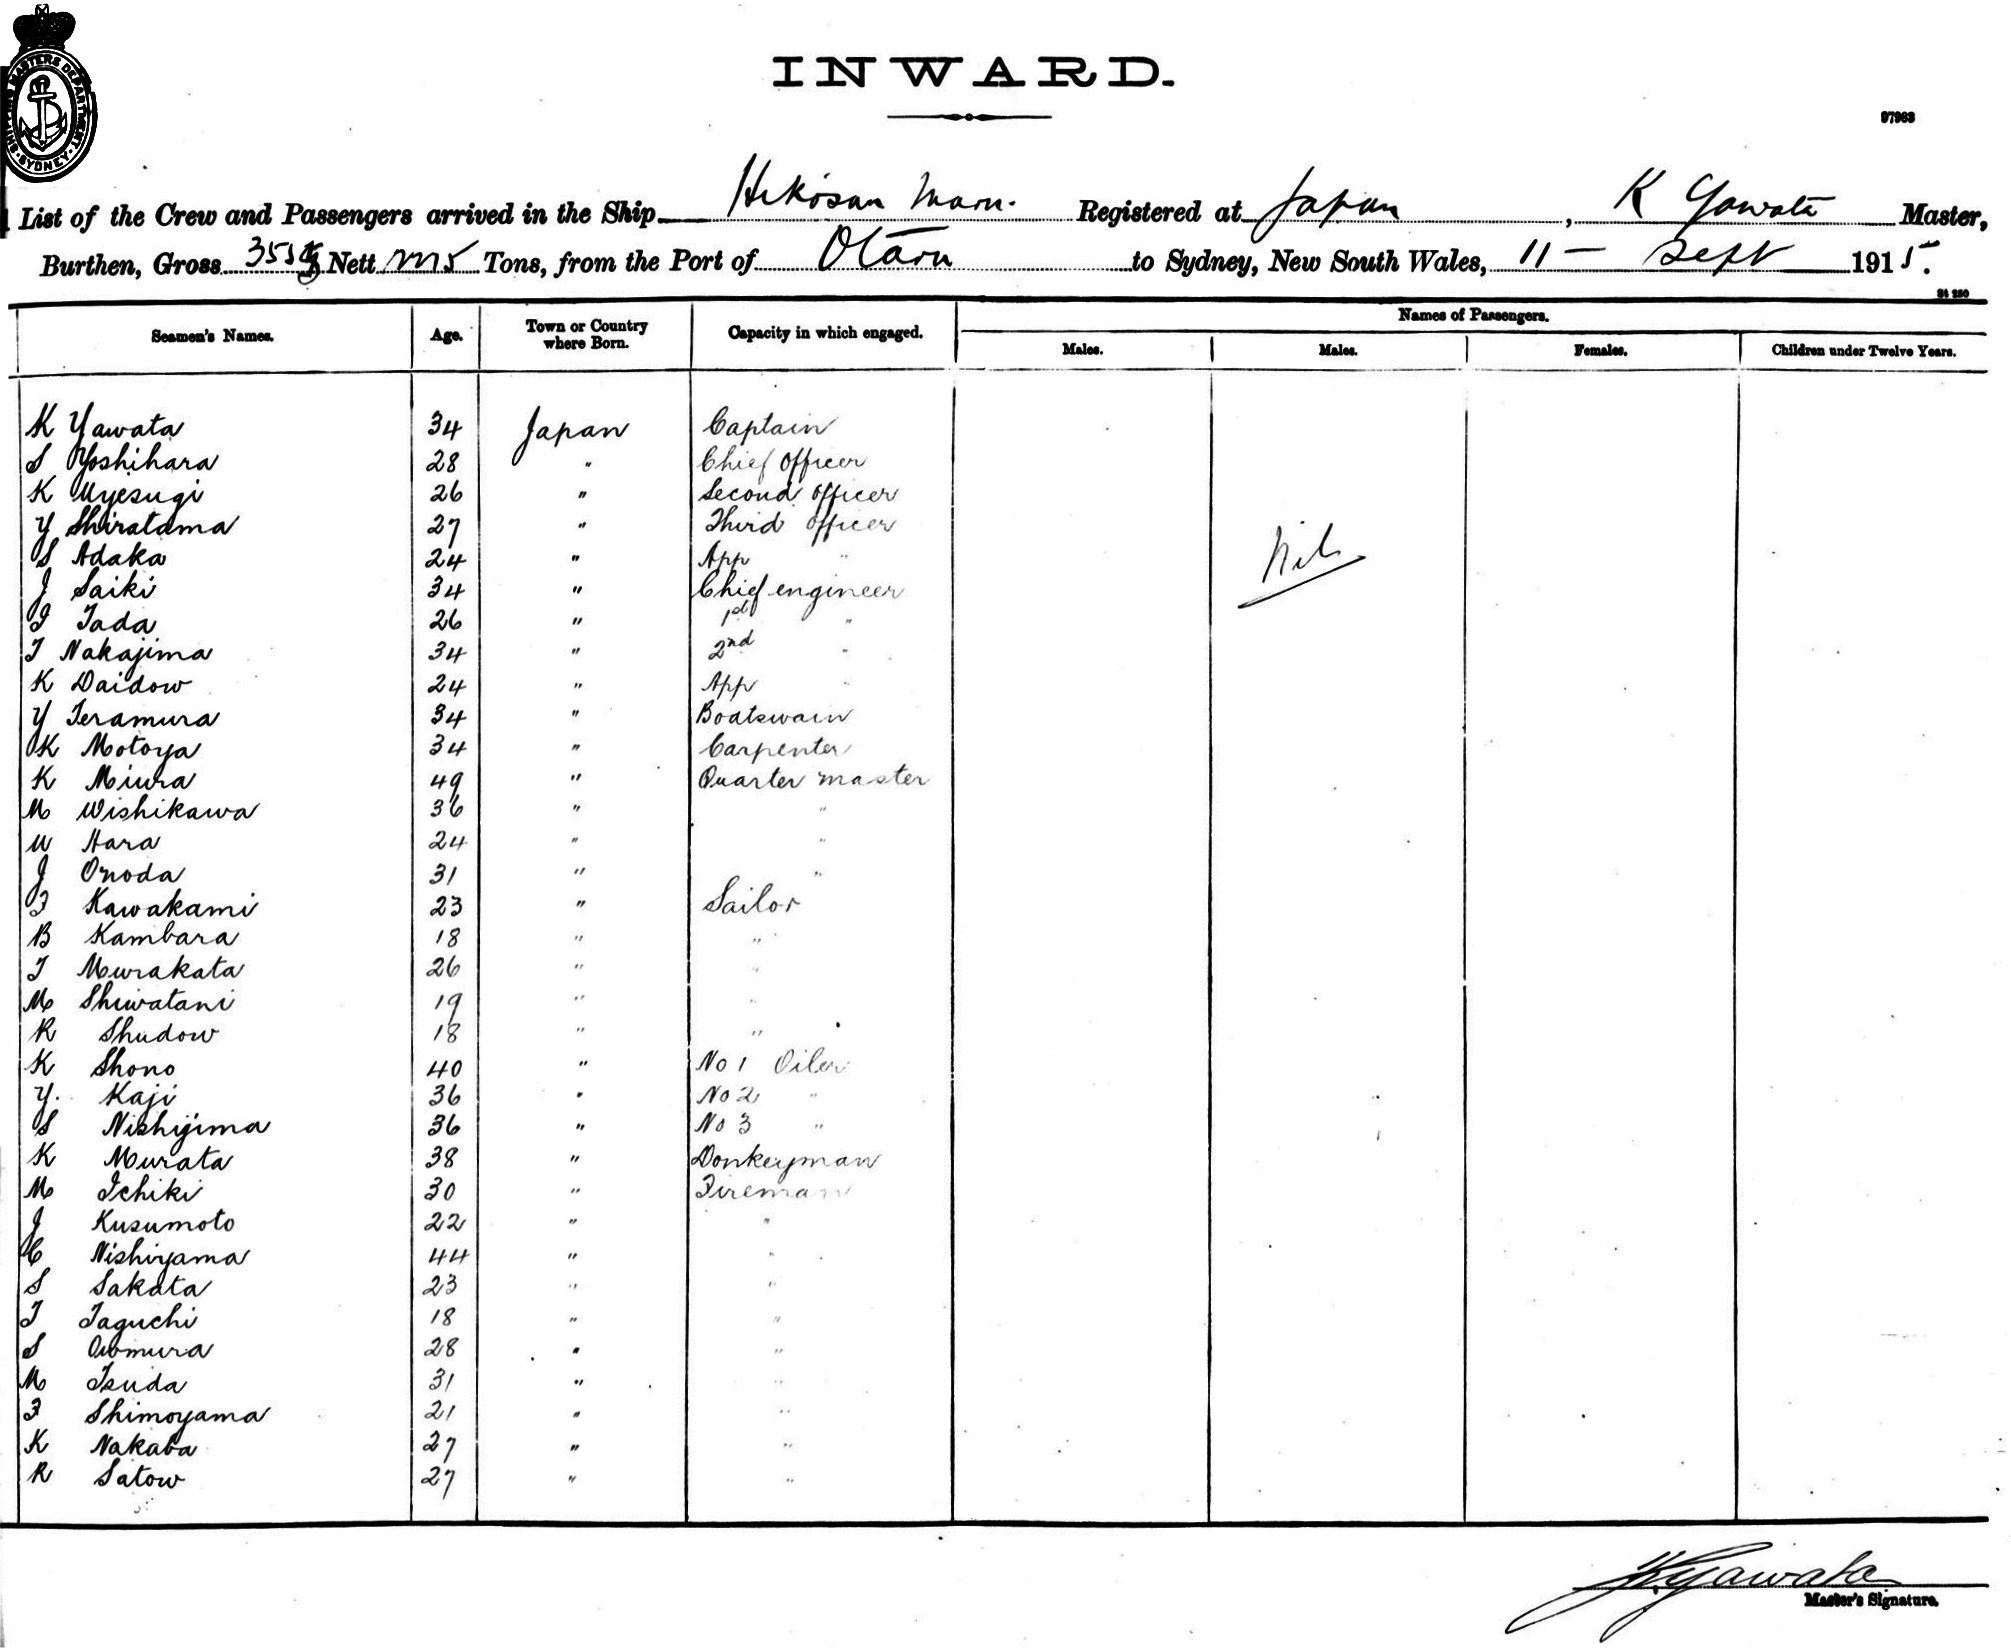 SHIPPING MASTERS DEPARTMENT SYDNEY
INWARD.
97963
List of the Crew and Passengers arrived in the Ship Hikosan Maru. Registered at Japan, K Yawata Master,
Burthen, Gross Nett Tons, from the Port of Otaru to Sydney, New South Wales, 11 – Sept 1915.
St 250
Seamen's Names. Age. Town or Country where Born. Capacity in which engaged. Names of Passengers.
Males. Males. Females. Children under Twelve Years.
K Yawata 34 Japan Captain
S Yoshihara 28 " Chief officer
K Uyesugi 26 " Second officer
Y Shiratama 27 " Third officer
S Adaka 24 " App "
Nil
J Saiki 34 " Chief engineer
I Tada 26 " 1st "
T Nakajima 34 " 2nd "
K Daidow 24 " App "
Y Teramura 34 " Boatswain
K Motoya 34 " Carpenter
K Miura 49 " Quarter master
M Wishikawa 36 " "
U Hara 24 " "
J Onoda 31 " "
F Kawakami 23 " Sailor
B Kambara 18 " "
T Murakata 26 " "
M Shiwatani 19 " "
R Shudow 18 " "
K Shono 40 " No 1 Oiler
Y. Kaji 36 " No 2 "
S Nishijima 36 " No 3 "
K Murata 38 " Donkeyman
M Ichiki 30 " Fireman
J Kusumoto 22 " "
C Nishiyama 44 " "
S Sakata 23 " "
T Taguchi 18 " "
S Owmura 28 " "
M Tsuda 31 " "
F Shimoyama 21 " "
K Nakaba 27 " "
R Satow 27 " "
K Yawata
Master's Signature.